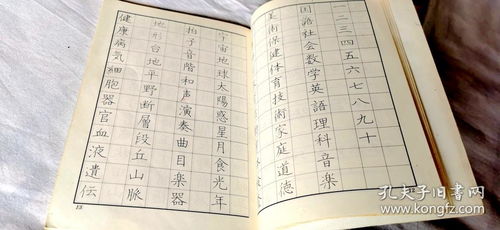 一二三四五六七八九十
国語社会数学英語理科音楽
美術保健体育技術家庭道徳
宇宙地球太陽惑星月食光年
拍子音階和声演奏曲目楽器
地形台地平野断層段丘山脈
健康病気細胞器官血液遺伝
孔夫子旧书网
www.kongfz.com